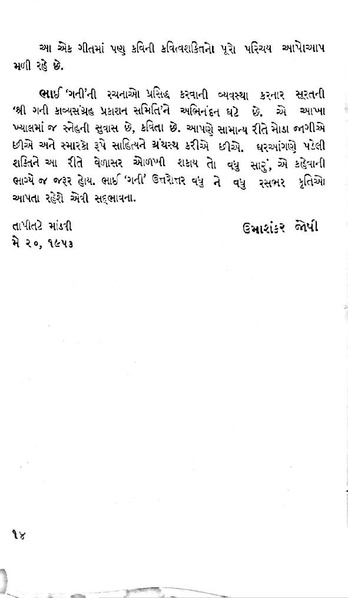 આ એક ગીતમાં પણ કવિની કવિત્વશક્તિનો પૂરો પરિચય આપોઆપ
મળી રહે છે.
ભાઈ ‘ગની’ની રચનાઓ પ્રસિદ્ધ કરવાની વ્યવસ્થા કરનાર સૂરતની
‘શ્રી ગની કાવ્યસંગ્રહ પ્રકાશન સમિતિ’ને અભિનંદન ઘટે છે. એ આખા
ખ્યાલમાં જ સ્નેહની સુવાસ છે, કવિતા છે. આપણે સામાન્ય રીતે મોડા જાગીએ
છીએ અને સ્મારકો રૂપે સાહિત્યને ગ્રંથસ્થ કરીએ છીએ. ઘરઆંગણે પડેલી
શક્તિને આ રીતે વેળાસર ઓળખી શકાય તો વધુ સારું, એ કહેવાની
ભાગ્યે જ જરૂર હોય. ભાઈ ‘ગની’ ઉત્તરોત્તર વધુ ને વધુ રસભર કૃતિઓ
આપતા રહેશે એવી સદ્ભાવના.
તાપીતટે માંડવી ઉમાશંકર જોષી
મે ૨૦, ૧૯૫૩
૧૪